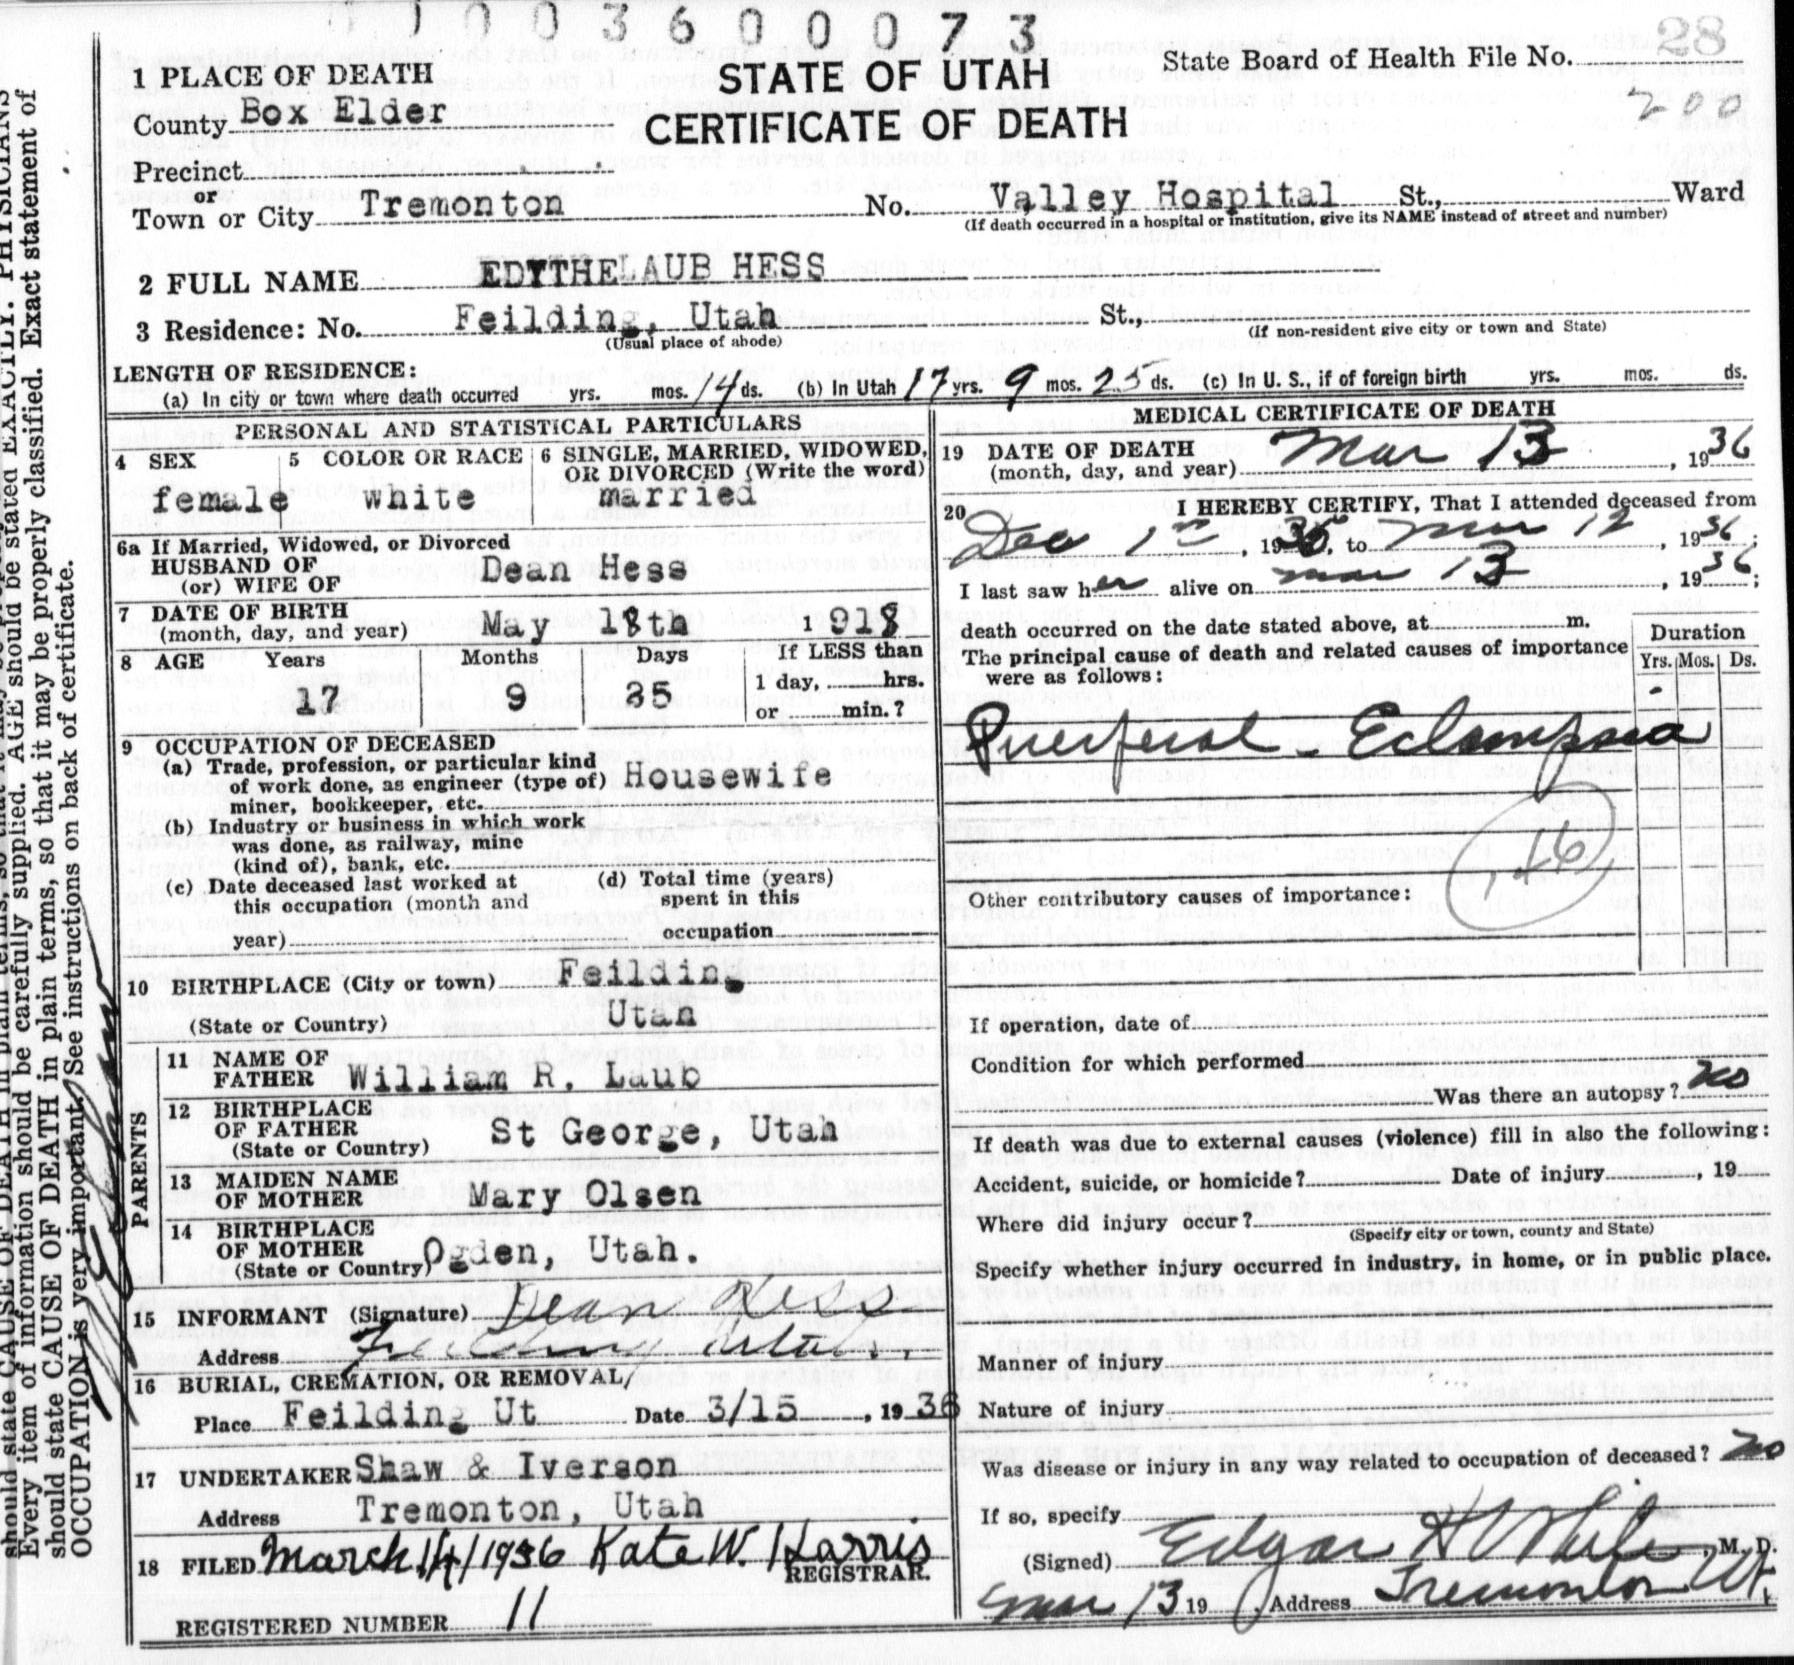 1003600073
28
State Board of Health File No.
200
STATE OF UTAH
CERTIFICATE OF DEATH
1 PLACE OF DEATH
County Box Elder
Precinct
or
Town or City Tremonton No. Valley Hospital St., Ward
(If death occurred in a hospital or institution, give its NAME instead of street and number)
2 FULL NAME EDYTHE LAUB HESS
3 Residence: No. Feilding, Utah St.,
(Usual place of abode) (If non-resident give city or town and State)
LENGTH OF RESIDENCE:
(a) In city or town where death occurred yrs. mos. 14 ds. (b) In Utah 17 yrs. 9 mos. 25 ds. (c) In U. S., if of foreign birth yrs. mos. ds.
PERSONAL AND STATISTICAL PARTICULARS
4 SEX 5 COLOR OR RACE 6 SINGLE, MARRIED, WIDOWED,
OR DIVORCED (Write the word)
female white married
6a If Married, Widowed, or Divorced
HUSBAND OF
(or) WIFE OF Dean Hess
7 DATE OF BIRTH
(month, day, and year) May 18th 1918
8 AGE Years Months Days If LESS than
1 day, hrs.
17 9 25 or min.?
9 OCCUPATION OF DECEASED
(a) Trade, profession, or particular kind
of work done, as engineer (type of) Housewife
miner, bookkeeper, etc.
(b) Industry or business in which work
was done, as railway, mine
(kind of), bank, etc.
(c) Date deceased last worked at (d) Total time (years)
this occupation (month and spent in this
year) occupation
10 BIRTHPLACE (City or town) Feilding
(State or Country) Utah
PARENTS
11 NAME OF
FATHER William R. Laub
12 BIRTHPLACE
OF FATHER St George, Utah
(State or Country)
13 MAIDEN NAME
OF MOTHER Mary Olsen
14 BIRTHPLACE
OF MOTHER Ogden, Utah.
(State or Country)
15 INFORMANT (Signature) Dean Hess
Address Feilding Utah.
16 BURIAL, CREMATION, OR REMOVAL
Place Feilding Ut Date 3/15, 1936
17 UNDERTAKER Shaw & Iverson
Address Tremonton, Utah
18 FILED March 14/1936 Kate W. Harris
REGISTRAR.
REGISTERED NUMBER 11
MEDICAL CERTIFICATE OF DEATH
19 DATE OF DEATH
(month, day, and year) Mar 13, 1936
20 I HEREBY CERTIFY, That I attended deceased from
Dec 1st, 1935, to Mar 12, 1936;
I last saw her alive on Mar 13, 1936;
death occurred on the date stated above, at m.
The principal cause of death and related causes of importance
were as follows:
Duration
Yrs. Mos. Ds.
Puerperal Eclampsia
146
Other contributory causes of importance:
If operation, date of
Condition for which performed
Was there an autopsy? no
If death was due to external causes (violence) fill in also the following:
Accident, suicide, or homicide? Date of injury, 19
Where did injury occur?
(Specify city or town, county and State)
Specify whether injury occurred in industry, in home, or in public place.
Manner of injury
Nature of injury
Was disease or injury in any way related to occupation of deceased? no
If so, specify
(Signed) Edgar H White, M. D.
Mar 13 19 Address Tremonton Ut.
should state CAUSE OF DEATH in plain terms, so that it may be properly
Every item of information should be carefully supplied. AGE should be stated EXACTLY. PHYSICIANS
should state CAUSE OF DEATH in plain terms, so that it may be properly classified. Exact statement of
OCCUPATION is very important. See instructions on back of certificate.